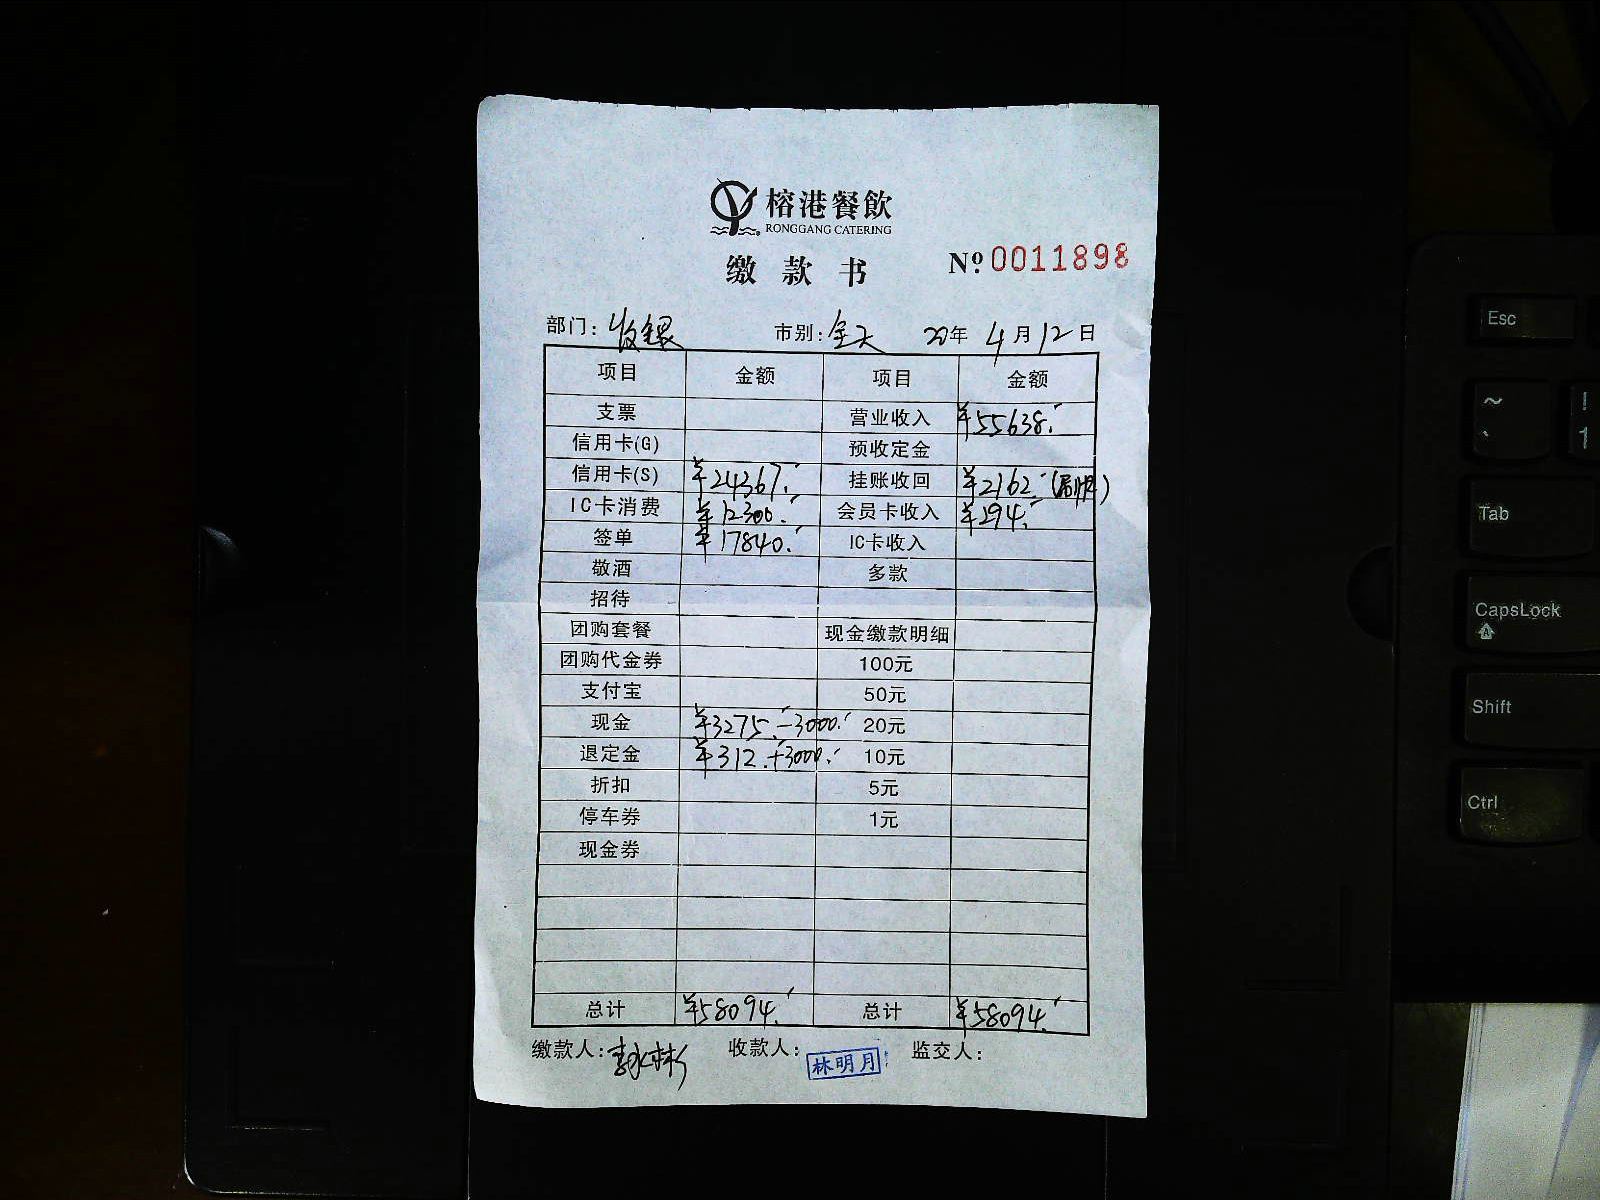 榕港餐飲
RONGGANG CATERING
缴款书 Nº 0011898
部门: 收银 市别: 全天 20年 4月12日
项目 金额 项目 金额
支票 营业收入 ¥55638.-
信用卡(G) 预收定金
信用卡(S) ¥24367.- 挂账收回 ¥2162.-
IC卡消费 ¥12300.- 会员卡收入 ¥294.-
签单 ¥17840.- IC卡收入
敬酒 多款
招待
团购套餐 现金缴款明细
团购代金券 100元
支付宝 50元
现金 ¥3275.-－3000.- 20元
退定金 ¥312.-+3000.- 10元
折扣 5元
停车券 1元
现金券
总计 ¥58094.- 总计 ¥58094.-
缴款人: 收款人: 林明月 监交人:
Esc
~
` ! 1
Tab
CapsLock
Shift
Ctrl